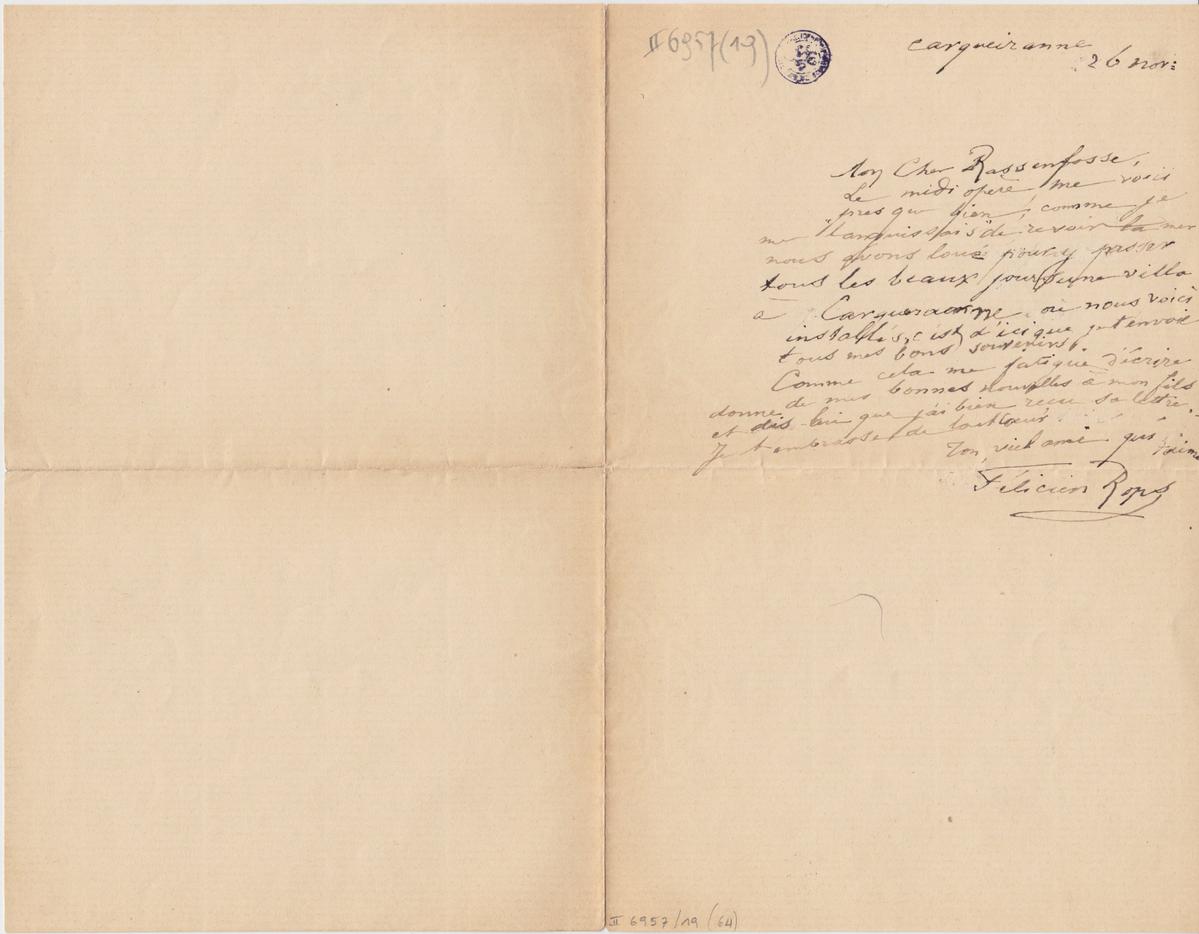 II 6957(19)
Carqueiranne
26 nov:
Mon Cher Rassenfosse,
Le midi opère me voici
presqu bien, comme je
me "languissais" de revoir la mer
nous avons loué pour y passer
tous les beaux jours une villa
à Carqueiranne où nous voici
installés, c'est d'ici que je t'envoie
tous mes bons souvenirs.
Comme cela me fatigue d'écrire
donne de mes bonnes nouvelles à mon fils
et dis-lui que j'ai bien reçu sa lettre.
Je t'embrasse de tout coeur
Ton vieil ami qui t'aime
Félicien Rops
II 6957/19 (64)